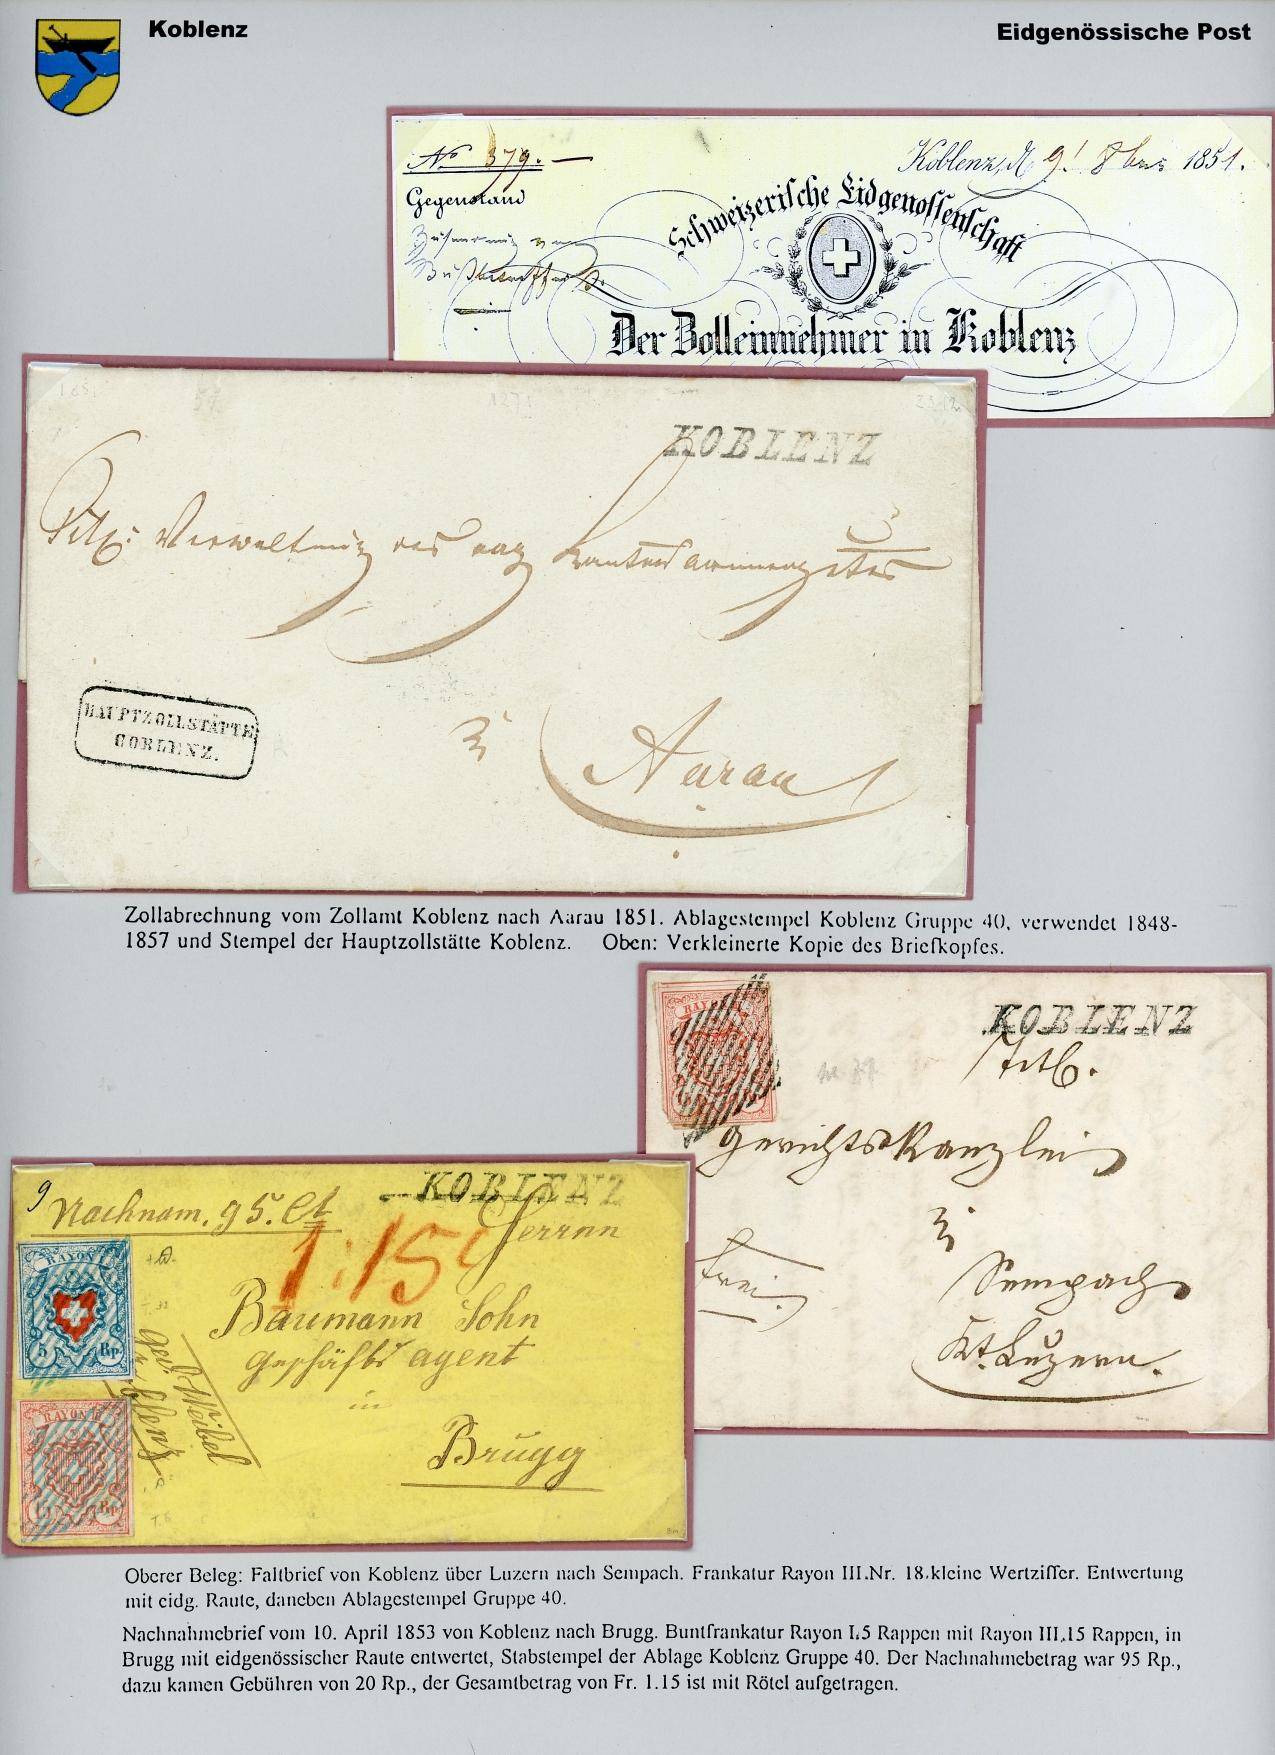 Koblenz
Eidgenössische Post
No 379.
Koblenz, d 9! 8bre 1851.
Gegenstand
Schweizerische Eidgenossenschaft
Der Zolleinnehmer in Koblenz
KOBLENZ
Titl: Verwaltung des
Aarau
HAUPTZOLLSTÄTTE
COBLENZ.
Zollabrechnung vom Zollamt Koblenz nach Aarau 1851. Ablagestempel Koblenz Gruppe 40, verwendet 1848-
1857 und Stempel der Hauptzollstätte Koblenz. Oben: Verkleinerte Kopie des Briefkopfes.
RAYON
KOBLENZ
Titl.
Gerichtskanzlei
Sempach
Kt. Luzern.
Frei.
9
Nachnam. 95. Ct
KOBLENZ
Herrn
1:15
Baumann Sohn
Geschäfts agent
in
Brugg
RAYON I
5 Rp.
Weibel
RAYON
Rp.
Oberer Beleg: Faltbrief von Koblenz über Luzern nach Sempach. Frankatur Rayon III.Nr. 18.kleine Wertziffer. Entwertung
mit eidg. Raute, daneben Ablagestempel Gruppe 40.
Nachnahmebrief vom 10. April 1853 von Koblenz nach Brugg. Buntfrankatur Rayon I.5 Rappen mit Rayon III.15 Rappen, in
Brugg mit eidgenössischer Raute entwertet, Stabstempel der Ablage Koblenz Gruppe 40. Der Nachnahmebetrag war 95 Rp.,
dazu kamen Gebühren von 20 Rp., der Gesamtbetrag von Fr. 1.15 ist mit Rötel aufgetragen.